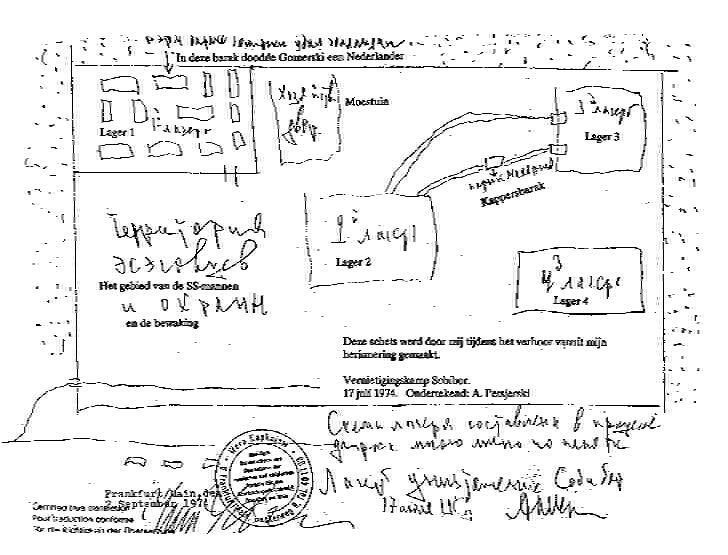 In deze barak doodde Gomerski een Nederlander
Moestuin
Lager 1
1й лагерь
Хоз
двор
1й лагерь
Lager 3
Kappersbarak
Территория
эсэсовцев
Het gebied van de SS-mannen
и охраны
en de bewaking
2й лагерь
Lager 2
4й лагерь
Lager 4
Deze schets werd door mij tijdens het verhoor vanuit mijn
herinnering gemaakt.
Vernietigingskamp Sobibor.
17 juli 1974. Ondertekend: A. Petsjerski
Схема лагеря составлена в процессе
допроса мною лично по памяти
Лагерь уничтожения Собибор
17 июля
Frankfurt/Main, den
2. September 197
Certified true translation
Pour traduction conforme